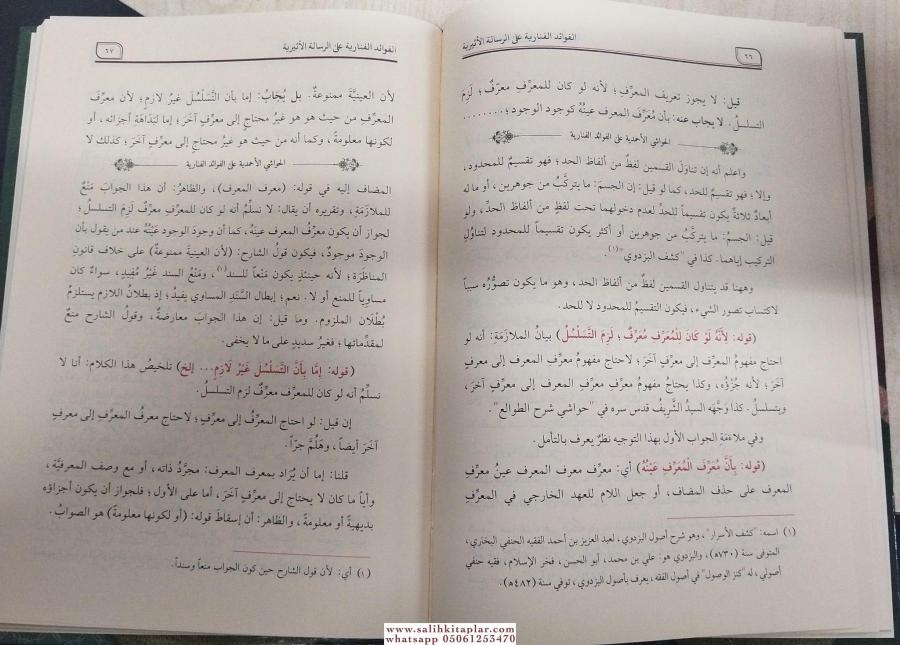 الفوائد الفنارية على الرسالة الأثيرية
٦٦
قيل: لا يجوز تعريف المعرِّف؛ لأنه لو كان للمعرِّف معرِّفٌ؛ لَزِمَ
التسلسلُ. لا يجاب عنه: بأن مُعَرِّفَ المعرف عينُهُ كوجود الوجود؛........
الحواشي الأحمدية على الفوائد الفنارية
واعلم أنه إن تناوَلَ القسمين لفظٌ من ألفاظ الحد؛ فهو تقسيمٌ للمحدود،
وإلا؛ فهو تقسيمٌ للحد، كما لو قيل: إن الجسمَ: ما يتركَّبُ من جوهرين، أو ما له
أبعادٌ ثلاثةٌ يكون تقسيماً للحدِّ لعدم دخولهما تحت لفظٍ من ألفاظ الحدِّ، ولو
قيل: الجسمُ: ما يتركَّبُ من جوهرين أو أكثر يكون تقسيماً للمحدود لتناوُلِ
التركيب إياهما. كذا في "كشف البزدوي"(١).
وههنا قد يتناول القسمين لفظٌ من ألفاظ الحد، وهو ما يكون تصوُّرُه سبباً
لاكتساب تصور الشيء، فيكون التقسيمُ للمحدود لا للحد.
(قوله: لأَنَّهُ لَوْ كَانَ لِلْمُعَرِّفِ مُعَرِّفٌ؛ لَزِمَ التَّسَلْسُلُ) بيانُ الملازَمَةِ: أنه لو
احتاج مفهومُ المعرِّف إلى معرِّفٍ آخَرَ؛ لاحتاج مفهومُ معرِّفِ المعرف إلى معرفٍ
آخَرَ؛ لأنه جُزْؤُه، وكذا يحتاجُ مفهومُ معرِّفِ معرِّفِ المعرف إلى معرِّفٍ آخَرَ،
ويتسلسلُ. كذا وَجَّهَه السيدُ الشَّرِيفُ قدس سره في "حواشي شرح الطوالع".
وفي ملاءَمَةِ الجواب الأول بهذا التوجيه نظرٌ يعرف بالتأمل.
(قوله: بِأَنَّ مُعَرِّفَ الْمُعَرِّفِ عَيْنُهُ) أي: معرِّف معرف المعرف عينُ معرِّفِ
المعرف على حذف المضاف، أو جعل اللام للعهد الخارجي في المعرِّفِ
(١) اسمه: "كشف الأسرار"، وهو شرح أصول البزدوي، لعبد العزيز بن أحمد الفقيه الحنفي البخاري،
المتوفى سنة (٧٣٠هـ)، والبزدوي هو: علي بن محمد، أبو الحسن، فخر الإسلام، فقيه حنفي
أصولي، له "كنز الوصول" في أصول الفقه، يعرف بأصول البزدوي، توفي سنة (٤٨٢هـ).
الفوائد الفنارية على الرسالة الأثيرية
٦٧
لأن العينيَّةَ ممنوعةٌ. بل يُجَابُ: إما بأن التَّسَلْسُلَ غيرُ لازمٍ؛ لأن معرِّفَ
المعرِّفِ من حيث هو هو غيرُ محتاجٍ إلى معرِّفٍ آخَرَ؛ إما لبَدَاهَةِ أجزائه، أو
لكونها معلومةً، وكما أنه من حيث هو غيرُ محتاجٍ إلى معرِّفٍ آخَرَ؛ كذلك لا
الحواشي الأحمدية على الفوائد الفنارية
المضاف إليه في قوله: (معرف المعرف)، والظاهرُ: أن هذا الجوابَ مَنْعٌ
للملازَمَةِ، وتقريره أن يقال: لا نسلِّمُ أنه لو كان للمعرِّفِ معرِّفٌ لَزِمَ التسلسلُ؛
لجواز أن يكون معرِّفُ المعرف عينَهُ، كما أن وجودَ الوجود عَيْنُهُ عند من يقول بأن
الوجودَ موجودٌ، فيكون قولُ الشارح: (لأن العينيةَ ممنوعةٌ) على خلاف قانونِ
المناظَرَة؛ لأنه حينئذٍ يكون مَنْعاً للسند(١)، ومَنْعُ السند غَيْرُ مُفِيدٍ، سواءٌ كان
مساوياً للمنع أو لا. نعم؛ إبطال السَّنَدِ المساوي يفيدُ؛ إذ بطلانُ اللازم يستلزمُ
بُطْلَانَ الملزوم. وما قيل: إن هذا الجوابَ معارضةٌ، وقولُ الشارح منعٌ
لمقدِّماتها؛ فغيرُ سديدٍ على ما لا يخفى.
(قوله: إِمَّا بِأَنَّ التَّسَلْسُلَ غَيْرُ لَازِمٍ... إلخ) تلخيصُ هذا الكلام: أنا لا
نسلِّمُ أنه لو كان للمعرِّف معرِّفٌ لزم التسلسلُ.
إن قيل: لو احتاج المعرِّفُ إلى معرِّفٍ؛ لاحتاج معرفُ المعرِّفِ إلى معرفٍ
آخَرَ أيضاً، وهَلُمَّ جرّاً.
قلنا: إما أن يُرَاد بمعرف المعرف: مجرَّدُ ذاته، أو مع وصف المعرفيَّة،
وأياً ما كان لا يحتاج إلى معرِّفٍ آخَرَ، أما على الأول؛ فلجواز أن يكون أجزاؤه
بديهيةً أو معلومةً، والظاهر: أن إسقاطَ قوله: (أو لكونها معلومةً) هو الصوابُ.
(١) أي: لأن قول الشارح حين كون الجواب منعاً وسنداً.
www.salihkitaplar.com
whatsapp 05061253470